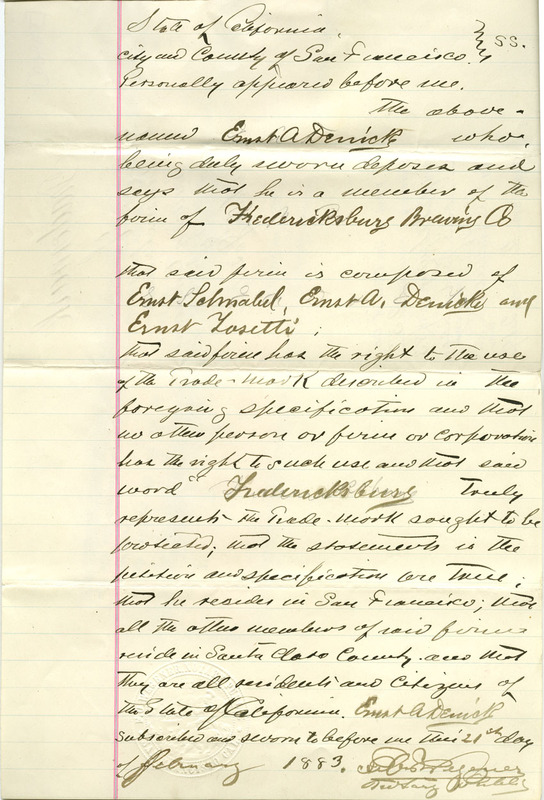 State of California,
city and County of San Francisco. } ss.
Personally appeared before me.
the above-
named Ernst A Denicke who,
being duly sworn deposes and
says that he is a member of the
firm of Fredericksburg Brewing Co
that said firm is composed of
Ernst Schnabel, Ernst A. Denicke and
Ernst Losetti;
that said firm has the right to the use
of the Trade-mark described in the
foregoing specification and that
no other person or firm or corporation
has the right to such use and that said
word "Fredericksburg truly
represents the Trade-mark sought to be
protected; that the statements in the
petition and specification are true;
that he resides in San Francisco; that
all the other members of said firm
reside in Santa Clara County. and that
they are all residents and Citizens of
the State of California. Ernst A Denicke
subscribed and sworn to before me this 21st day
of February 1883.
Notary Public